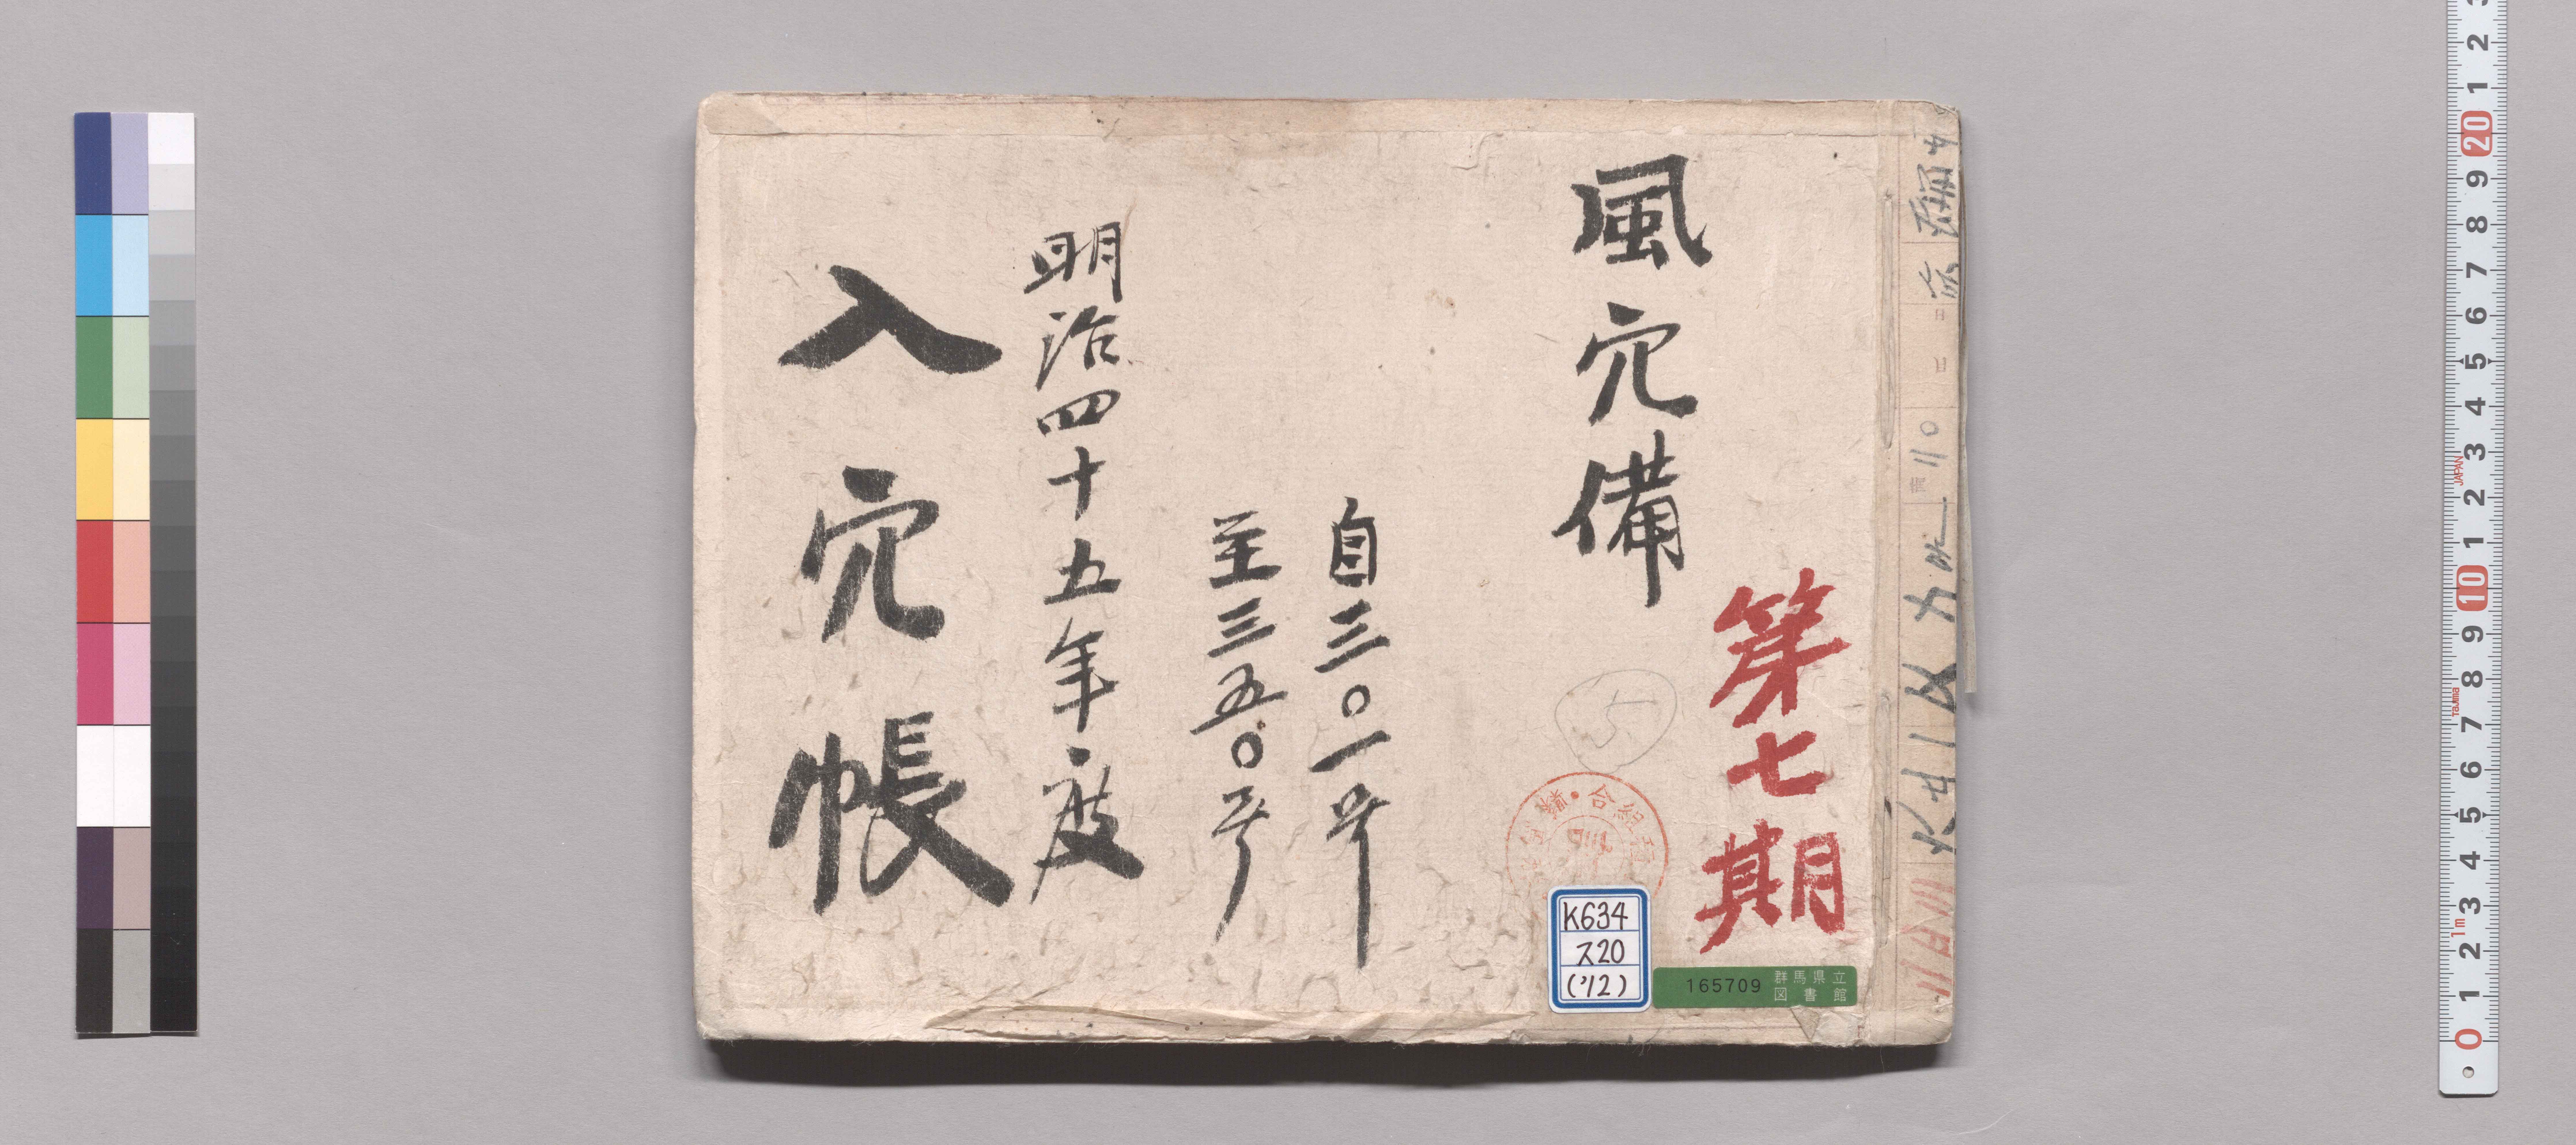 第七期
風穴備
自三〇一号
至三五〇号
明治四十五年度
入穴帳
K634
ス20
('12)
165709 群馬県立
図書館